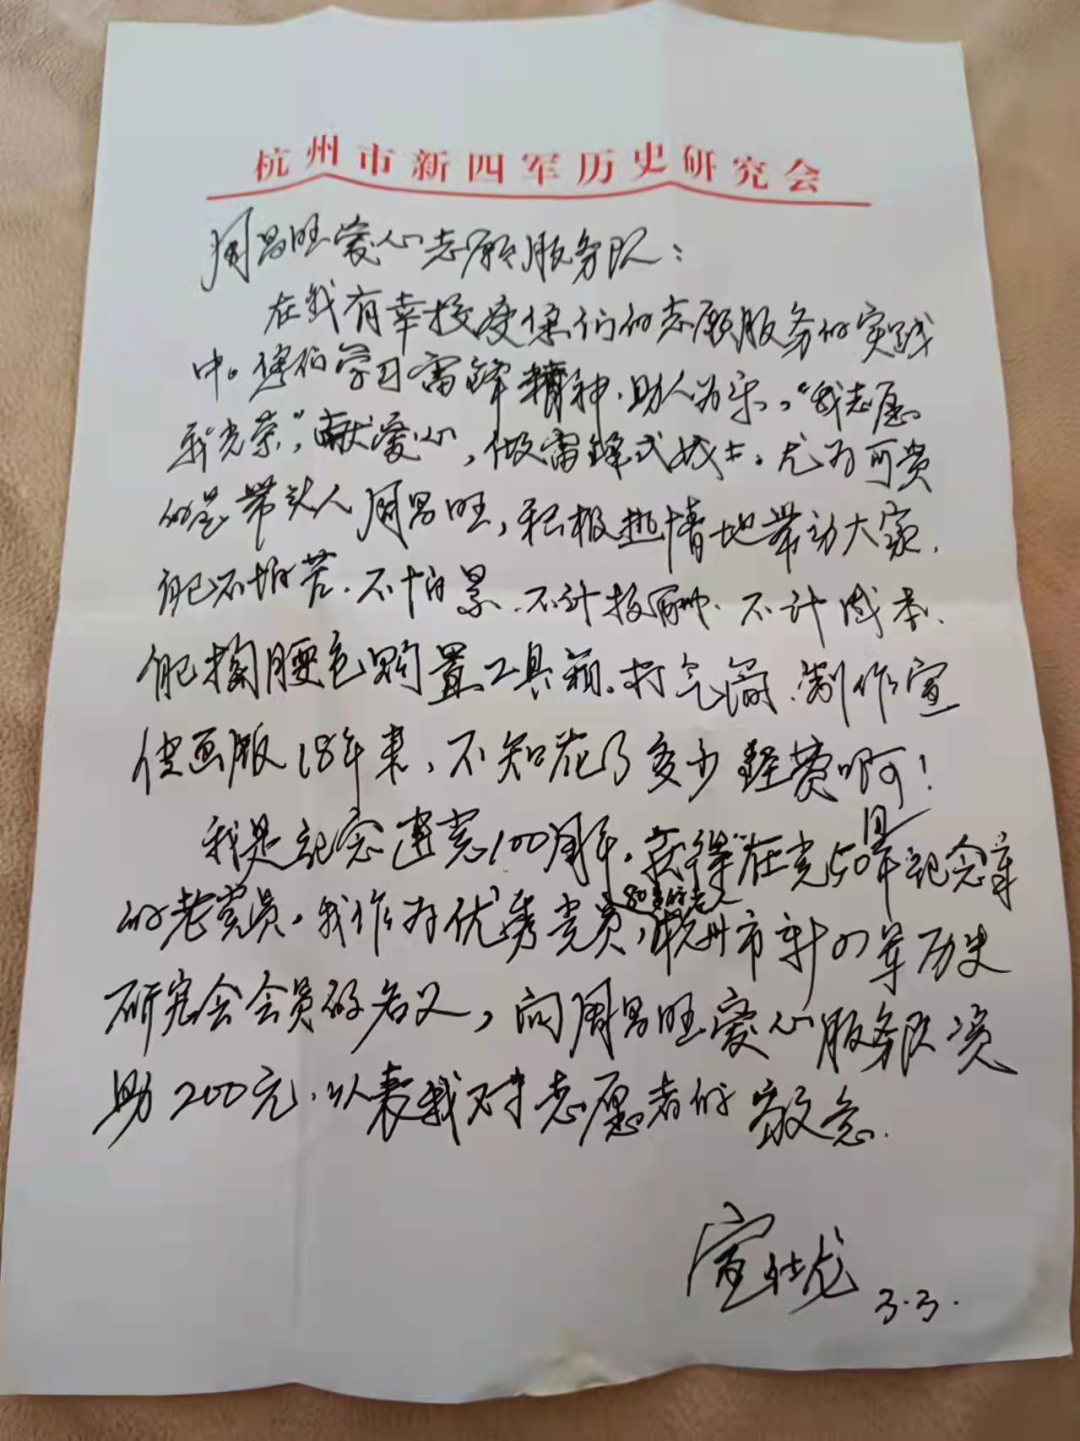 杭州市新四军历史研究会
周昌旺爱心志愿服务队：
在我有幸接受你们的志愿服务的实践
中。你们学习雷锋精神，助人为乐，“我志愿
我光荣”，献爱心，做雷锋式战士。尤为可贵
的是带头人周昌旺，积极热情地带动大家，
能不怕苦、不怕累、不计报酬、不计成本、
能掏腰包购置工具箱、打气筒、制作宣
传画版18年来，不知花了多少经费啊！
我是纪念建党100周年，获得“在党50周年纪念章
的老党员。我作为优秀党员，80岁的老人，杭州市新四军历史
研究会会员的名义，向周昌旺爱心服务队资
助200元，以表我对志愿者的敬意。
宣壮龙 3.3.